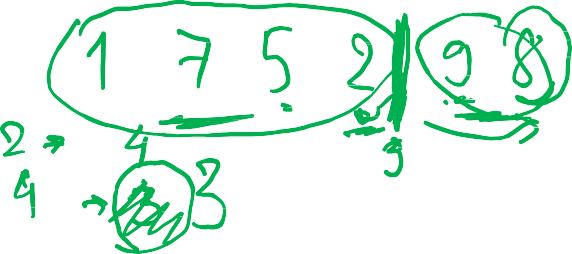 1 7 5 2 9 8
2 → 4 9
4 → 3